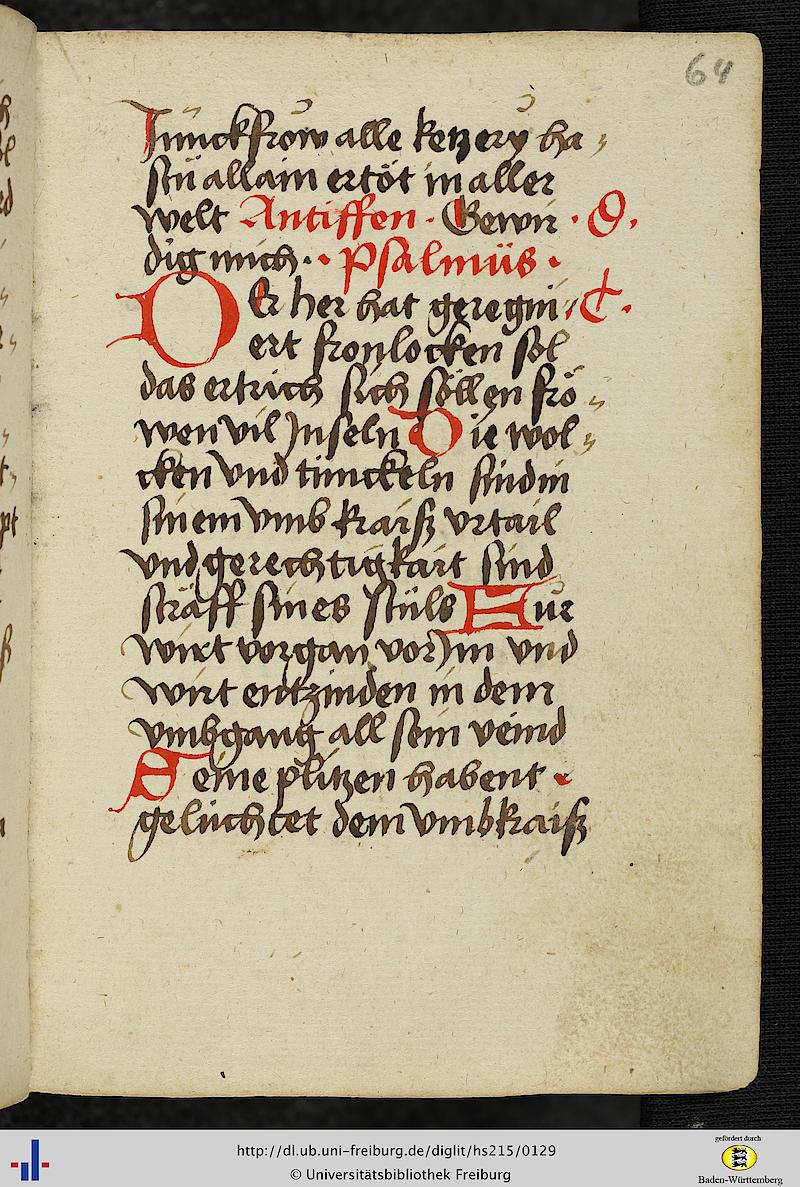 64
Junckfrow alle ketzery ha⸗
stu allain ertöt in aller
welt Antiffen · Gewir · d.
dig mich · · Psalmüs ·
DEr her hat geregni⸗ ert
ert frouͤlocken sol
das ertrich sich söllen frö⸗
wen vil Jnseln Die wol⸗
cken vnd tunckeln sind in
sinem vmb kraiß vrtail
vnd gerechtigkait sind
straff sines stuͤls Fur
wirt vorgan vor Jm vnd
wirt entzinden in dem
vmbgang all sein veind
Seine plitzen habent
geluchtet dem vmbkraiß
http://dl.ub.uni-freiburg.de/diglit/hs215/0129
© Universitätsbibliothek Freiburg
gefördert durch
Baden-Württemberg